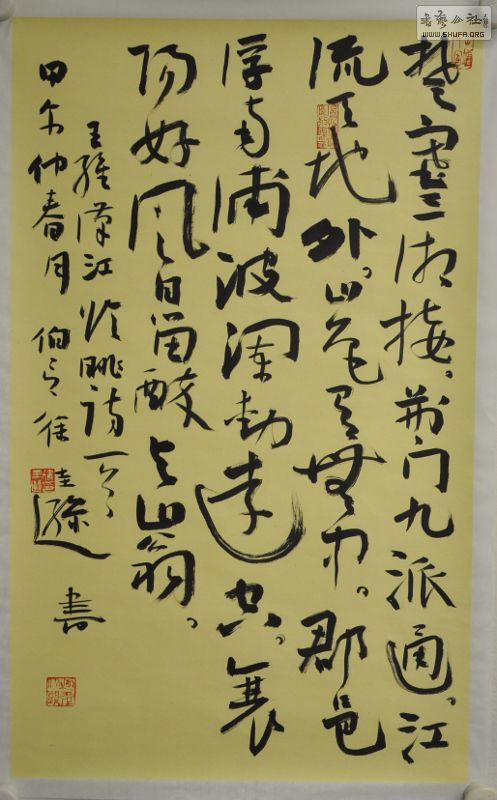 书艺公社
WWW.SHUFA.ORG
楚塞三湘接。荆门九派通。江
流天地外。山色有無中。郡邑
浮前浦波澜动遠空。襄
阳好风日留醉与山翁。
王维漢江临眺诗一首
甲午仲春月 伯言 徐圭逊 书